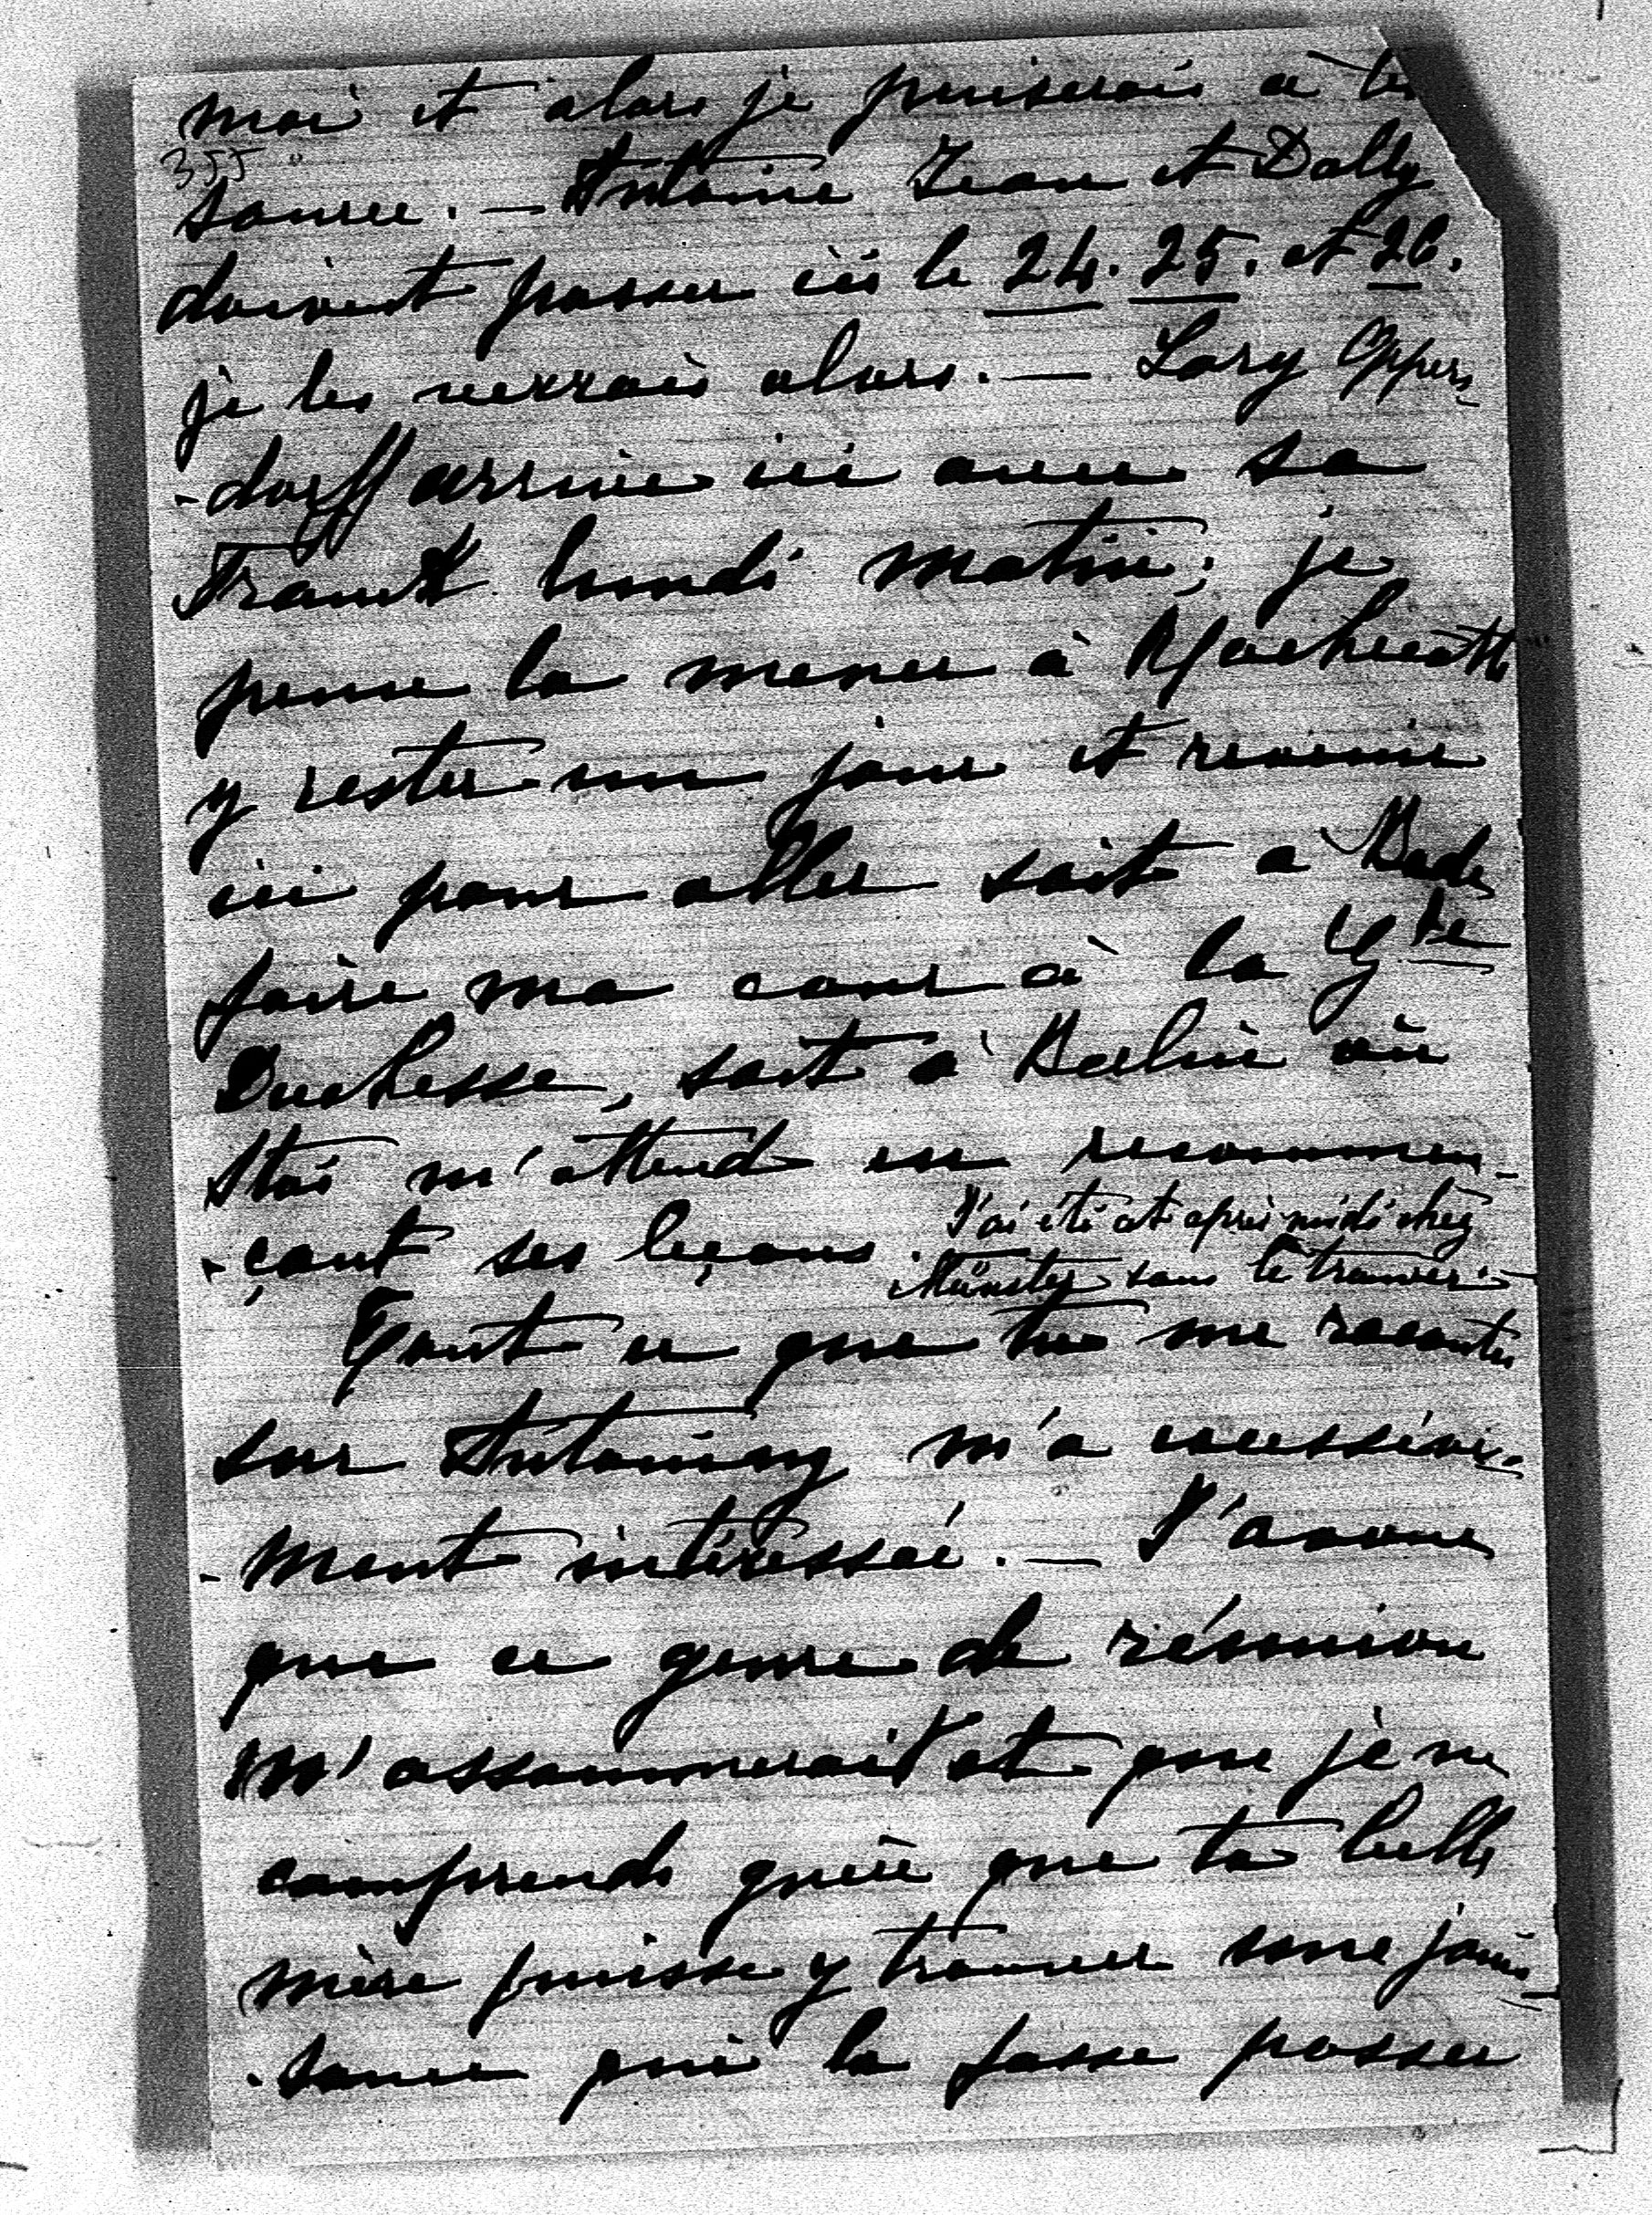 moi et alors je puiserais à la
355
source. — Antoine Jean et Dolly
doivent passer ici le 24. 25. et 26.
je les verrais alors. — Lory Oppers
-dorff arrive ici avec sa
lundi matin; je
pense la mener à
y rester un jour et revenir
ici pour aller soit a Bade
faire ma cour à la Gde
Duchesse, soit à Berlin où
m'attend en recommen-
-çant ses leçons. J'ai été cet après-midi chez
Münster sans le trouver.
Tout ce que tu me racontes
sur Antoniny m'a excessive-
-ment intéressée. — J'avoue
que ce genre de réunion
m'assommerait et que je ne
comprends guère que ta belle
mère puisse y trouver une jouis-
-sance qui la fasse passer